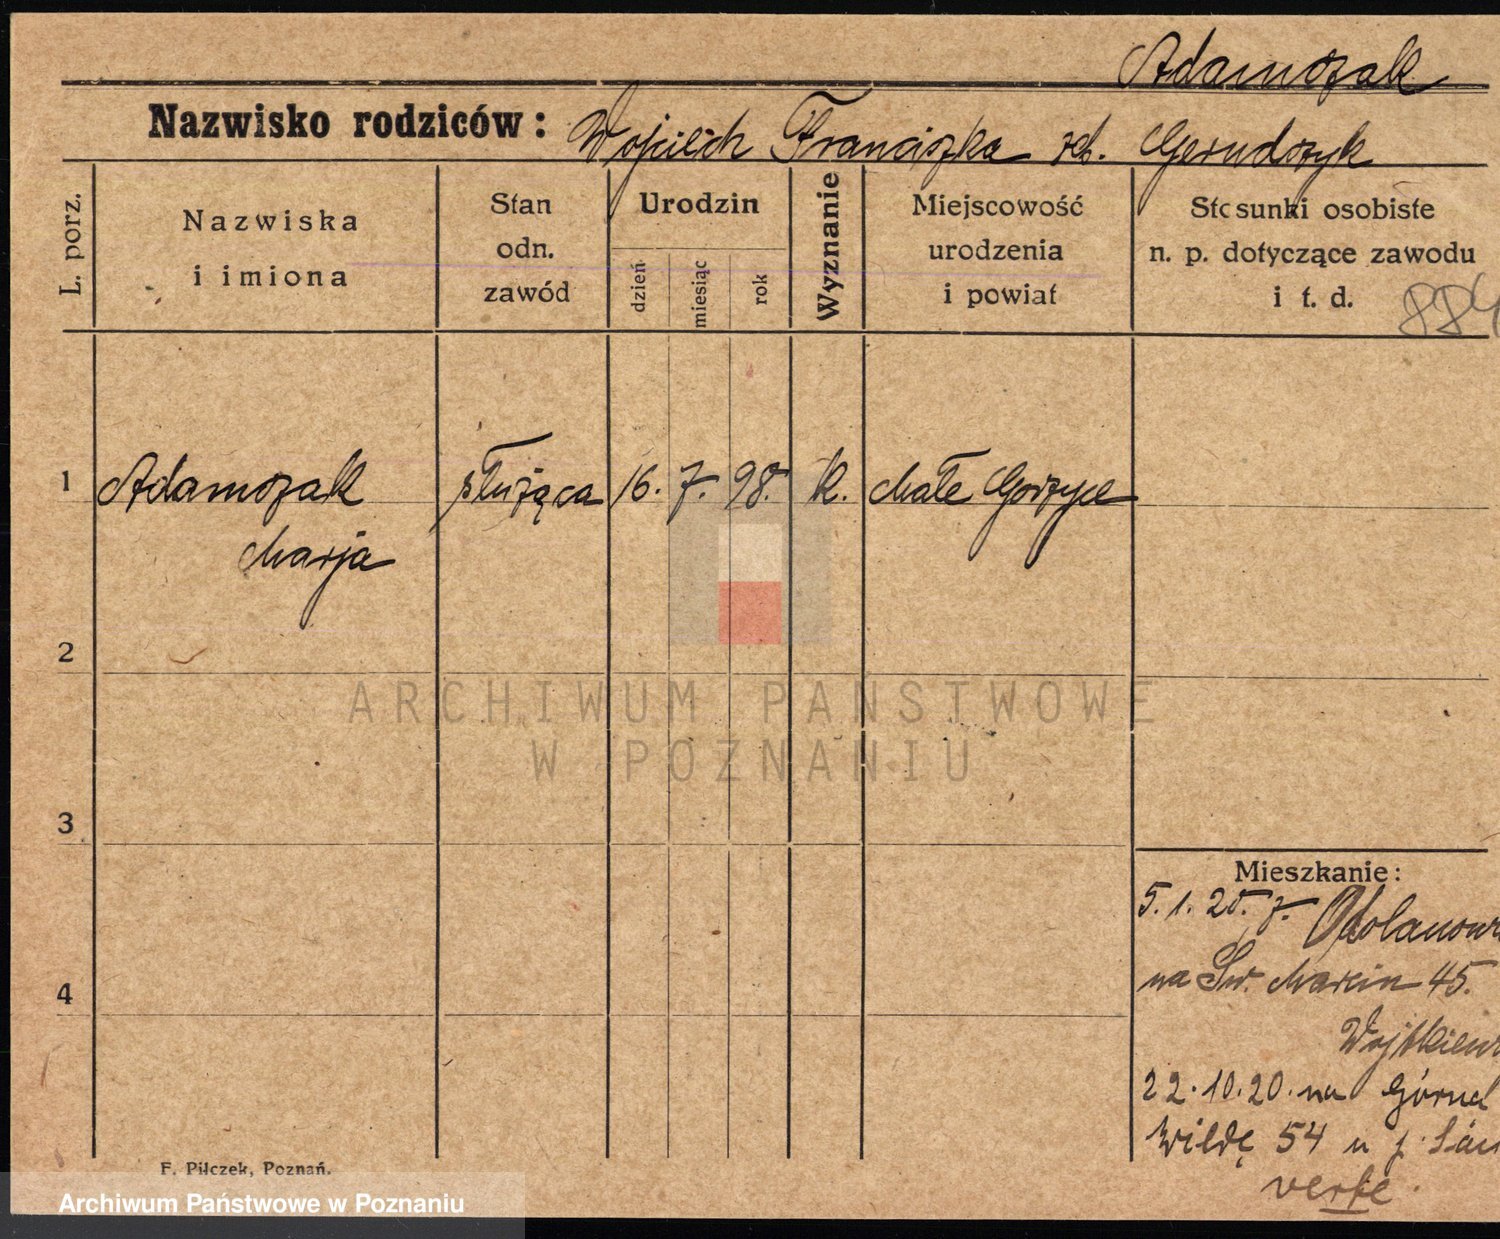 Adamczak
Nazwisko rodziców: Wojciech Franciszka
L. porz.
Nazwiska
i imiona
Stan
odn.
zawód
Urodzin
dzień
miesiąc
rok
Wyznanie
Miejscowość
urodzenia
i powiat
Stosunki osobiste
n. p. dotyczące zawodu
i t. d.
884
1 Adamczak służąca 16. 7. 98. k. Małe Gorzyce
Marja
2
3
4
Mieszkanie:
5. 1. 20. z. Odolanow
na Św. Marcin 45.
22.10.20. na Górnej
Wildę 54 u p.
verte.
F. Pilczek, Poznań.
ARCHIWUM PAŃSTWOWE
W POZNANIU
Archiwum Państwowe w Poznaniu